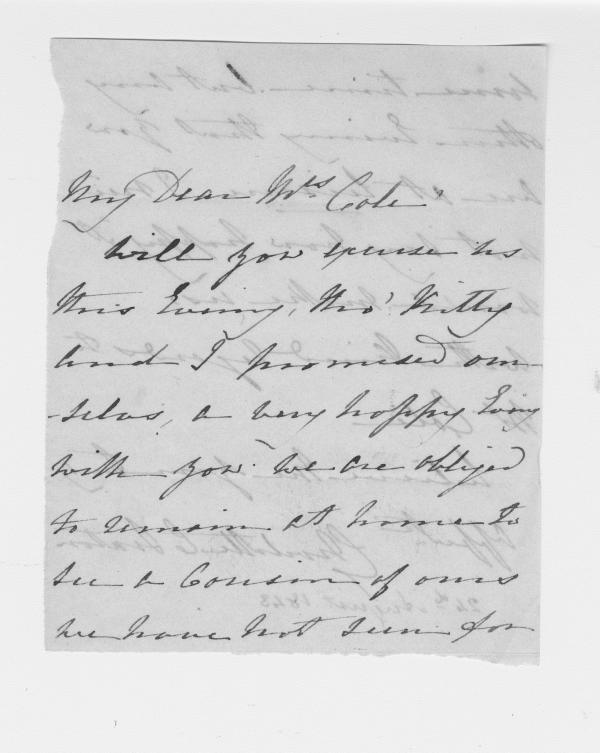 My Dear Mrs Cole
Will you excuse us
this Evening, tho' Kitty
and I promised our-
-selves, a very happy Eveng
with you. we are obliged
to remain at home to
see a Cousin of ours
we have not seen for